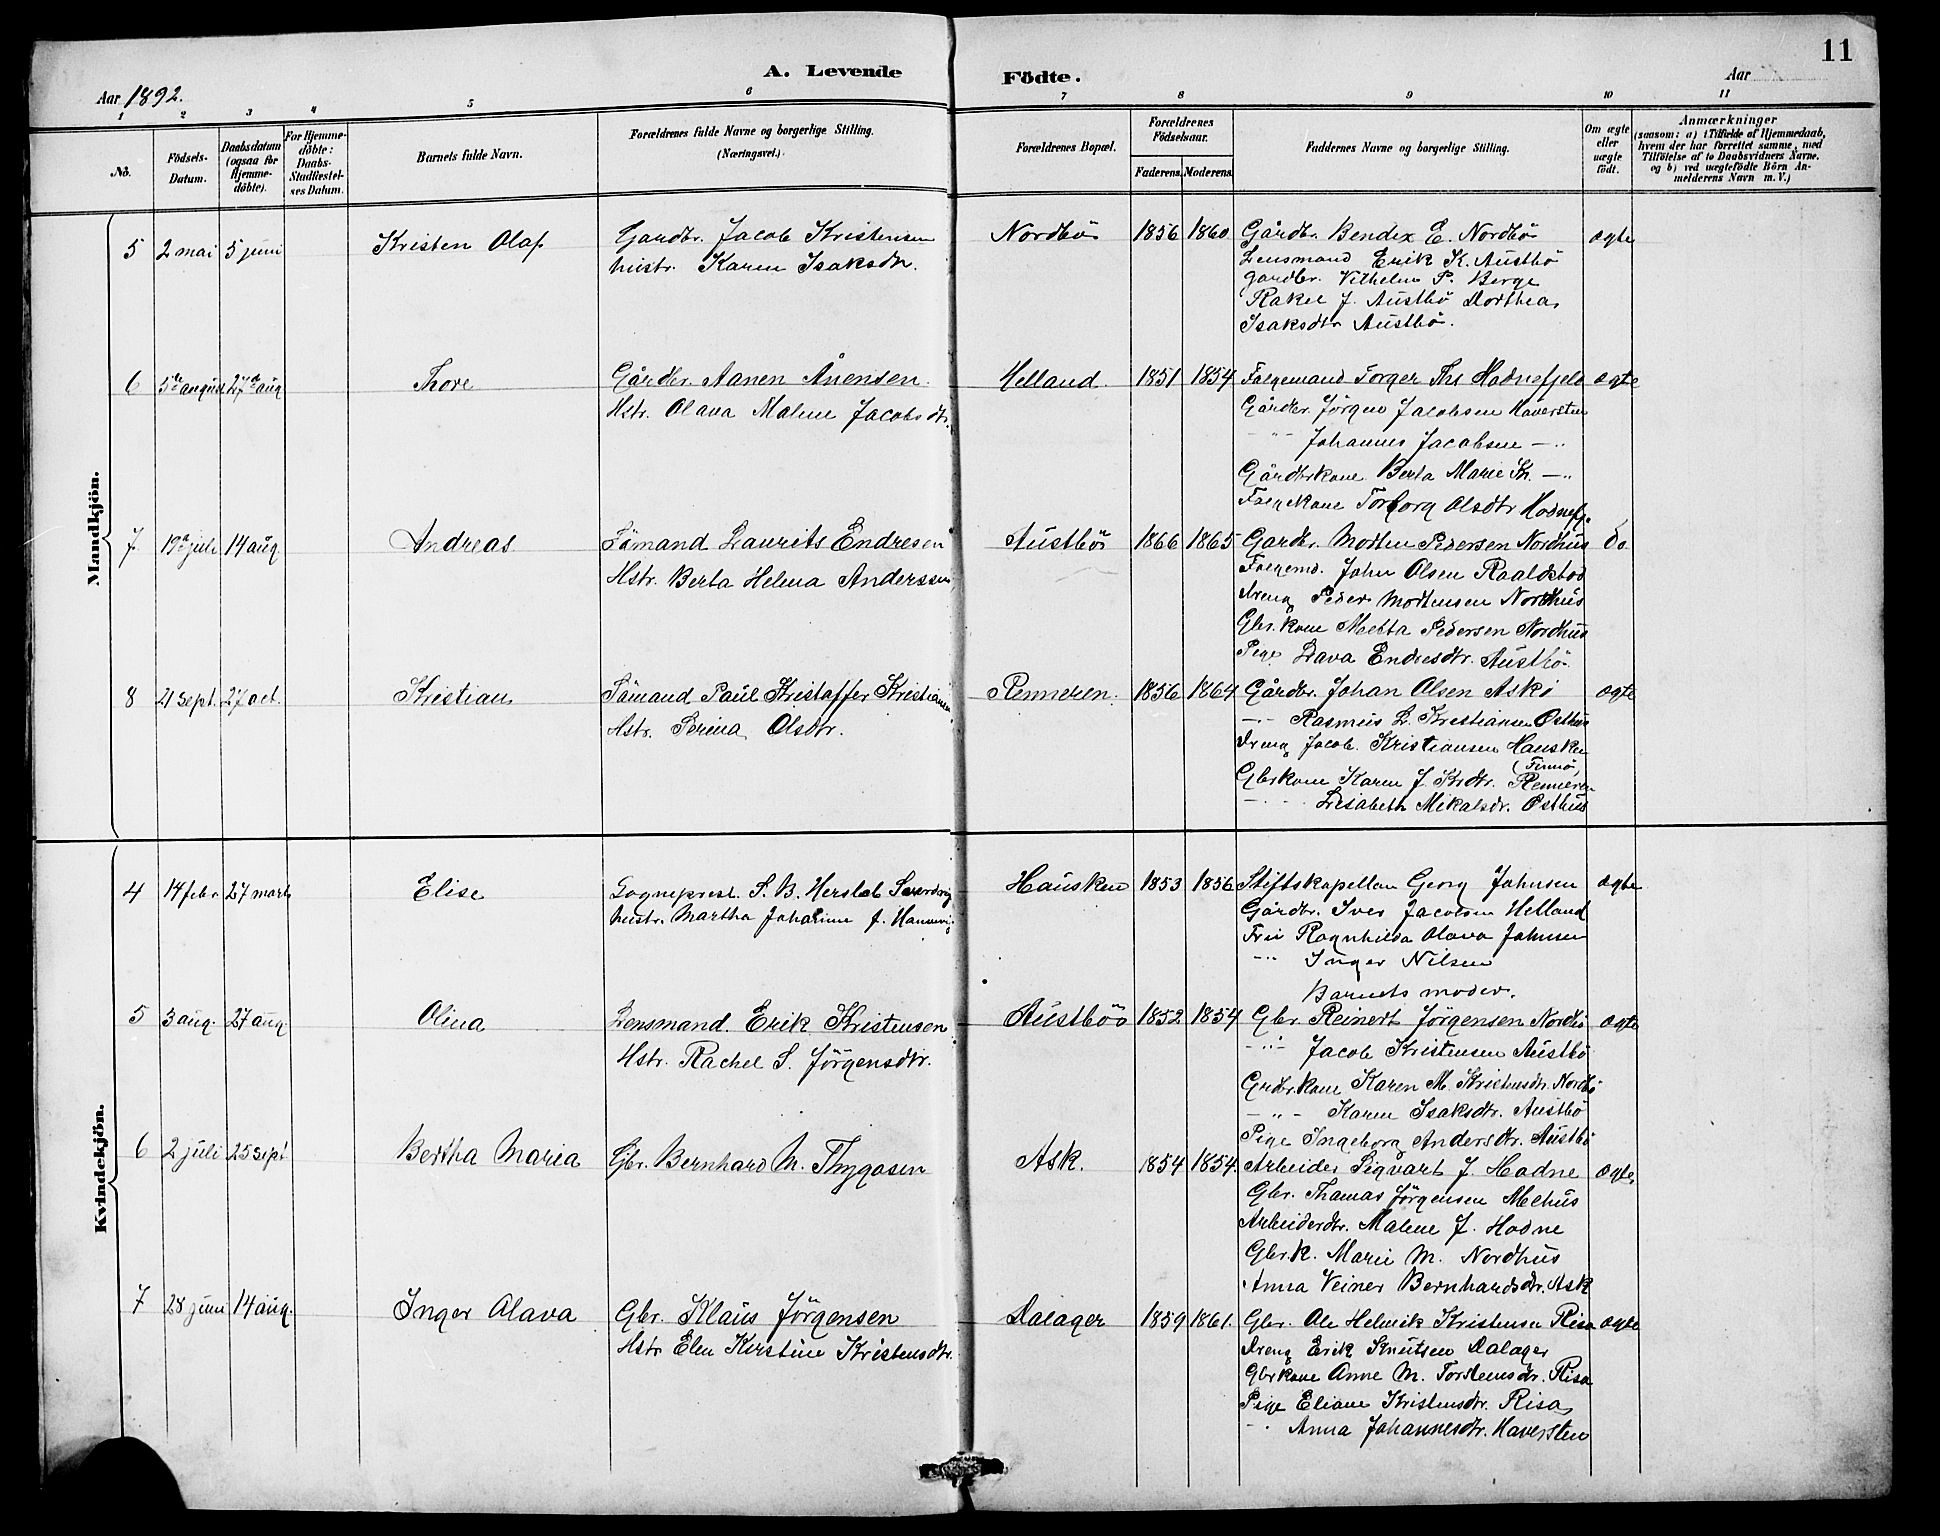 11
A. Levende Födte.
Aar 1892. Aar
1 2 3 4 5 6 7 8 9 10 11
No.
Födsels-Datum.
Daabsdatum (ogsaa for Hjemme-döbte).
For Hjemme-döbte: Daabs-Stadfæstel-ses Datum.
Barnets fulde Navn.
Forældrenes fulde Navne og borgerlige Stilling.
(Næringsvei.)
Forældrenes Bopæl.
Forældrenes Födselsaar.
Faderens. Moderens.
Faddernes Navne og borgerlige Stilling.
Om ægte eller uægte födt.
Anmærkninger
(saasom: a) i Tilfælde af Hjemmedaab,
hvem der har forrettet samme, med
Tilföielse af to Daabsvidners Navne,
og b) ved uægtefödte Börn An-
melderens Navn m. V.)
Mandkjön.
5 2 mai 5 juni Kristen Olaf Gardbr. Jacob Kristensen Nordbö 1856 1860 Gårdbr. Bendix E. Nordbö ægte
hustr. Karen Isaksdtr. Lensmand Erik K. Austbö
gardbr. Vilhelm P. Berge
Rakel J. Austbö Dorthea
Isaksdtr Austbö.
6 5te august 27de aug Thore Gårdbr. Aanen Ånensen Helland. 1851 1854 Følgemand Torger Ths Hodnefjeld ægte
Hstr. Olava Malene Jacobsdtr. Gårdbr. Jörgen Jacobsen Haversten
-"- Johannes Jacobsen -"-
Gårdbrkone Berta Marie Th. -"-
Følgekone Torborg Olsdtr Hodnefj.
7 19de juli 14 aug Andreas Sömand Laurits Endresen Austbö 1866 1865 Gardbr. Morten Pedersen Nordhus do
Hstr. Berta Helena Anderssen Følgemd. John Olsen Raaldstad
dreng Peder Mortensen Nordhus
Gbr. kone Metta Pedersen Nordhus
Pige Lava Endresdtr. Austbö.
8 21 sept. 27 oct. Kristian Sömand Paul Kristoffer Kristiansen Renneren. 1856 1864 Gårdbr. Johan Olsen Askö ægte
Hstr. Serina Olsdtr. -"- Rasmus L. Kristiansen Østhus
dreng Jacob Kristiansen Hausken
(Finnö)
Gbrkone Karen J. Krdtr. Renneren
-"- Lisabeth Mikalsdr. Østhus
Kvindekjön.
4 14 febr 27 marts Elise Sogneprest. S. B. Hersleb Hausken 1853 1856 Stiftskapellan Georg Johnsen ægte
hustr. Martha Johanne f. Hannevig. Gårdbr. Iver Jacobsen Helland
Frü Ragnhilda Olava Johnsen
-"- Inger Nilsen
Barnets moder.
5 3 aug. 27 aug. Olina Lensmand. Erik Kristensen Austbö 1852 1854 Gbr. Reinert Jörgensen Nordbö ægte
Hstr. Rachel S. Jörgensdtr. -"- Jacob Kristensen Austbö
Grdbr.kone Karen M. Kristensdtr. Nordbö
-"- Karen Isaksdtr. Austbö
Pige Ingeborg Andersdtr. Austbö
6 2 juli 25 sept Bertha Maria Gbr. Bernhard M. Thygosen Ask. 1854 1854. Arbeider Sigvart J. Hodne ægte
Gbr. Thomas Jörgensen Mehus
Arbeiderdtr. Malene J. Hodne
Gbr.k. Marie M. Nordhus
Anna Veiner Bernhardsdtr. Ask
7 28 juni 14 aug. Inger Olava Gbr. Klaus Jörgensen Dalager 1859 1861. Gbr. Ole Helmik Kristensen Risa ægte
Hstr Elen Kirstine Kristensdtr. dreng Erik Knutsen Dalager
Gbrkone Anne M. Torstensdr. Risa
Pige Eliane Kristensdtr. Risa
-"- Anna Johannesdtr. Haversten